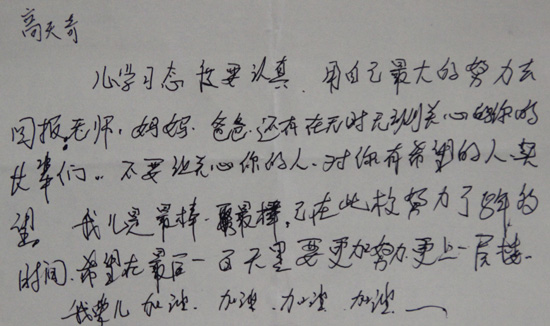 高天奇
儿学习态度要认真 用自己最大的努力去
回报老师、妈妈、爸爸、还有在无时无刻关心你的
长辈们。不要让关心你的人、对你有希望的人失
望 我儿是最棒、最棒, 已在此校努力了 年的
时间、希望在最后一百天里要更加努力更上一层楼、
我 儿 加油、加油、加油、加油